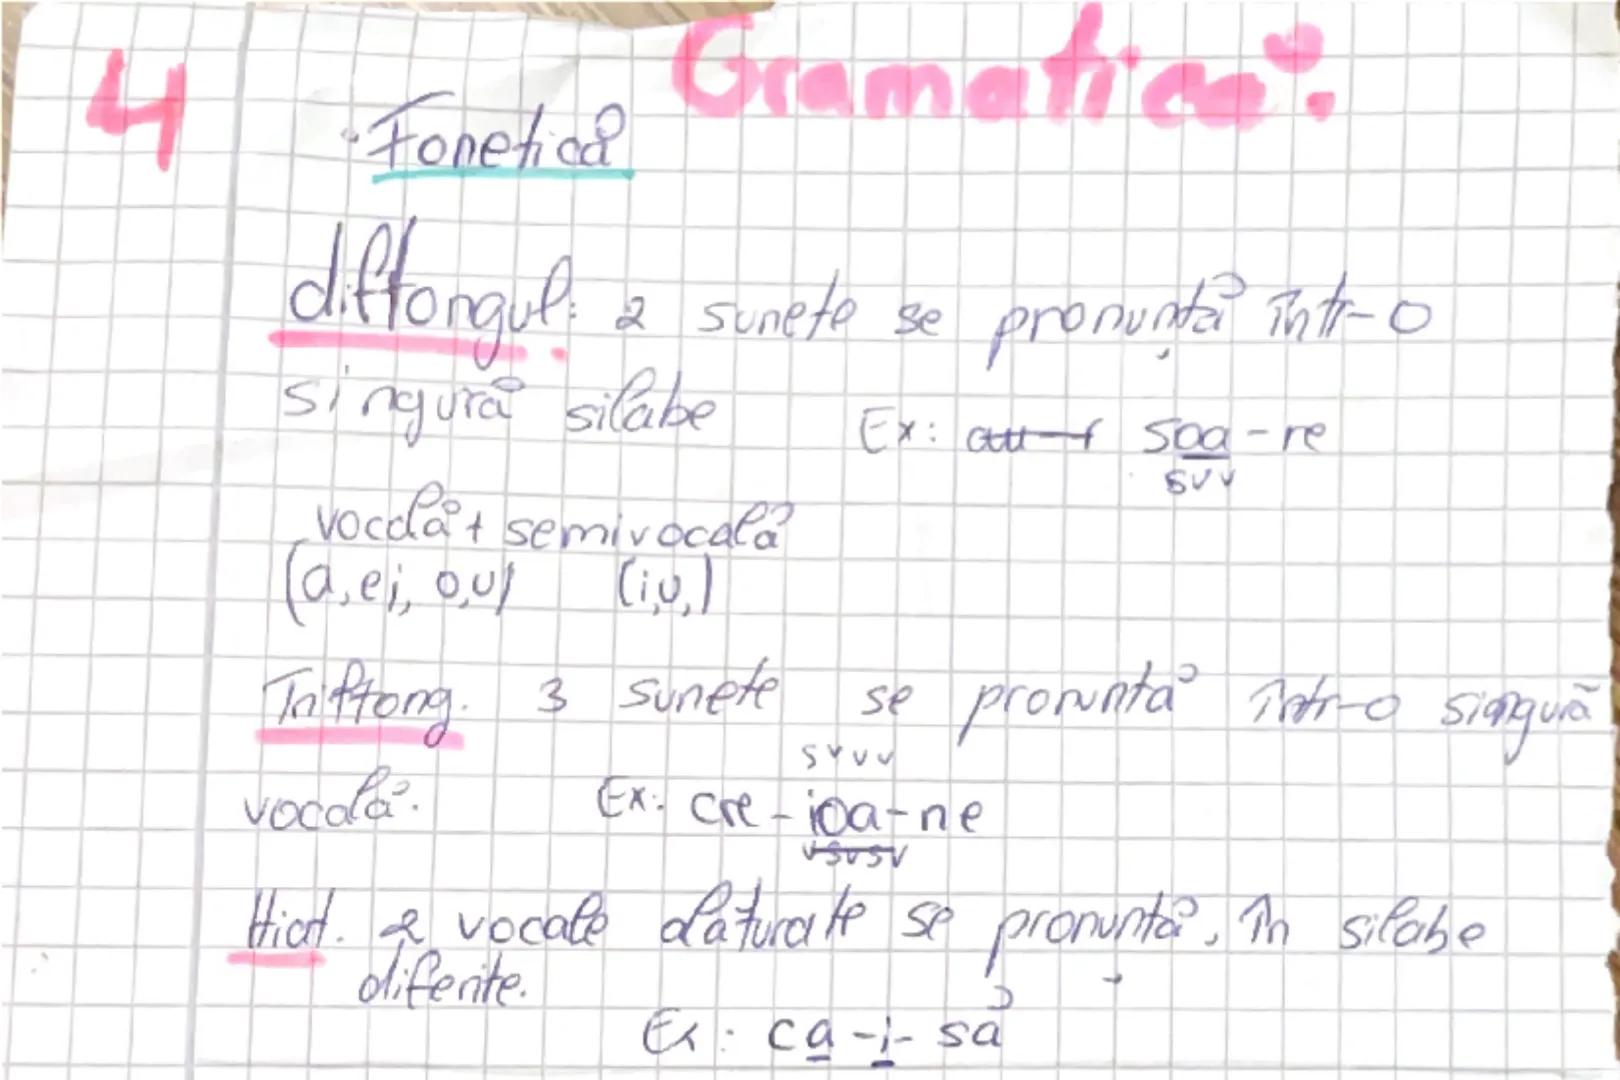 4
Gramatică.
Fonetică
diftongul: 2 sunete se pronunță într-o
singură silabe Ex: soa-re
sv v
vocală + semivocală
(a, e, i, o, u) (i, u,)
Triftong. 3 sunete se pronunta într-o siangură
svvv
vocală. Ex: cre-ioa-ne
vsvsv
Hiat. 2 vocale alaturate se pronunță, în silabe
diferite.
Ex: ca-i-să